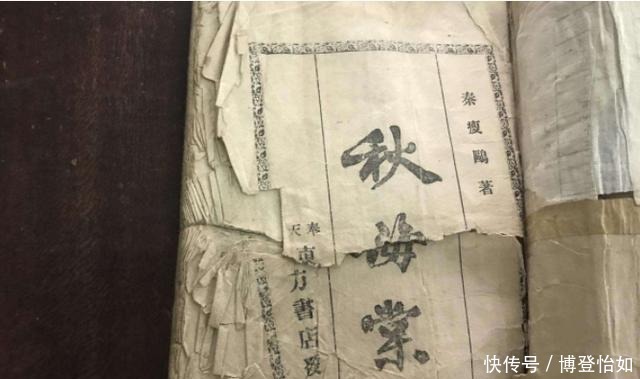 秦瘦鷗著
秋海棠
奉天
東方書店發
快传号 / 博登怡如